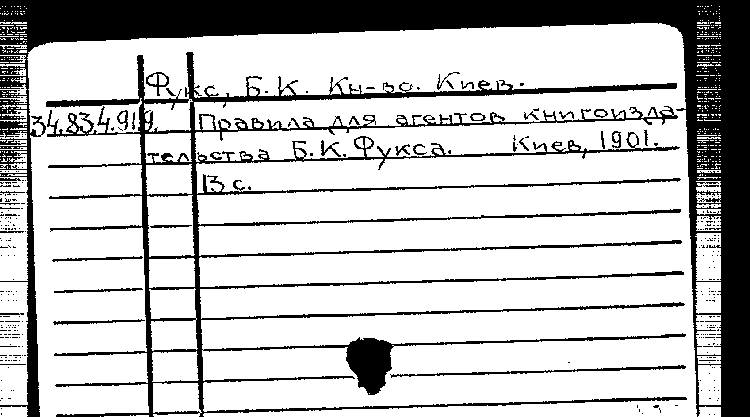 Фукс, Б.К. Кн-во. Киев.
34.83.4.919. Правила для агентов книгоизда-
тельства Б.К.Фукса. Киев, 1901.
13 с.